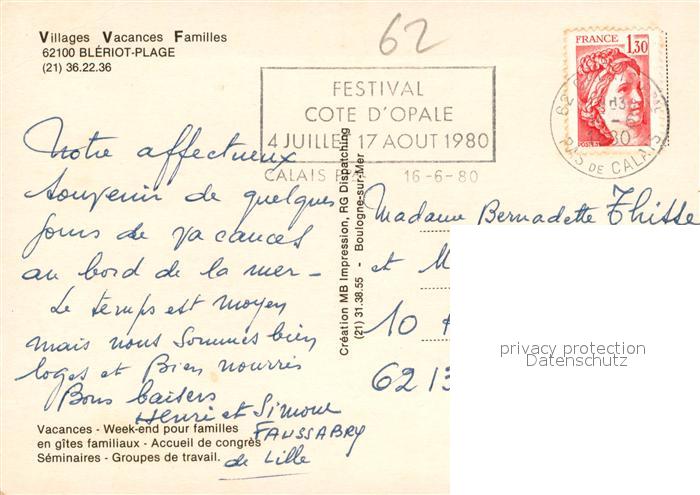 Villages Vacances Familles
62100 BLÉRIOT-PLAGE
(21) 36.22.36
62
FESTIVAL
COTE D'OPALE
4 JUILLET 17 AOUT 1980
CALAIS 16-6-80
FRANCE 1,30
POSTES
62
80
PAS DE CALAIS
Notre affectueux
souvenir de quelques
jours de vacances
au bord de la mer -
Le temps est moyen
mais nous sommes bien
logés et Bien nourris
Bons baisers
Henri et Simone
FAUSSABRY
de Lille
Vacances - Week-end pour familles
en gîtes familiaux - Accueil de congrès
Séminaires - Groupes de travail.
Création MB Impression, RG Dispatching
(21) 31.38.55 - Boulogne-sur-Mer
Madame Bernadette Thisse
et M
10
6213
privacy protection
Datenschutz